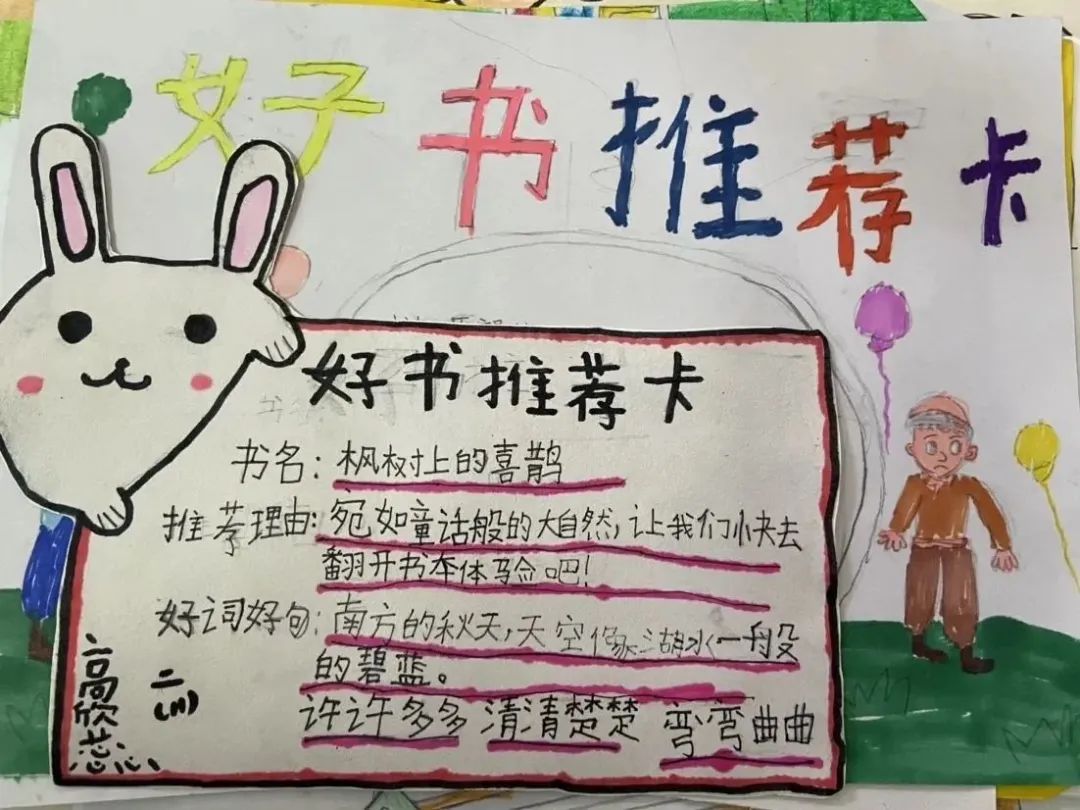 好书推荐卡
好书推荐卡
书名：枫树上的喜鹊
推荐理由：宛如童话般的大自然，让我们快去
翻开书本体验吧！
好词好句：南方的秋天，天空像湖水一般
的碧蓝。
许许多多 清清楚楚 弯弯曲曲
二(11)
高欣